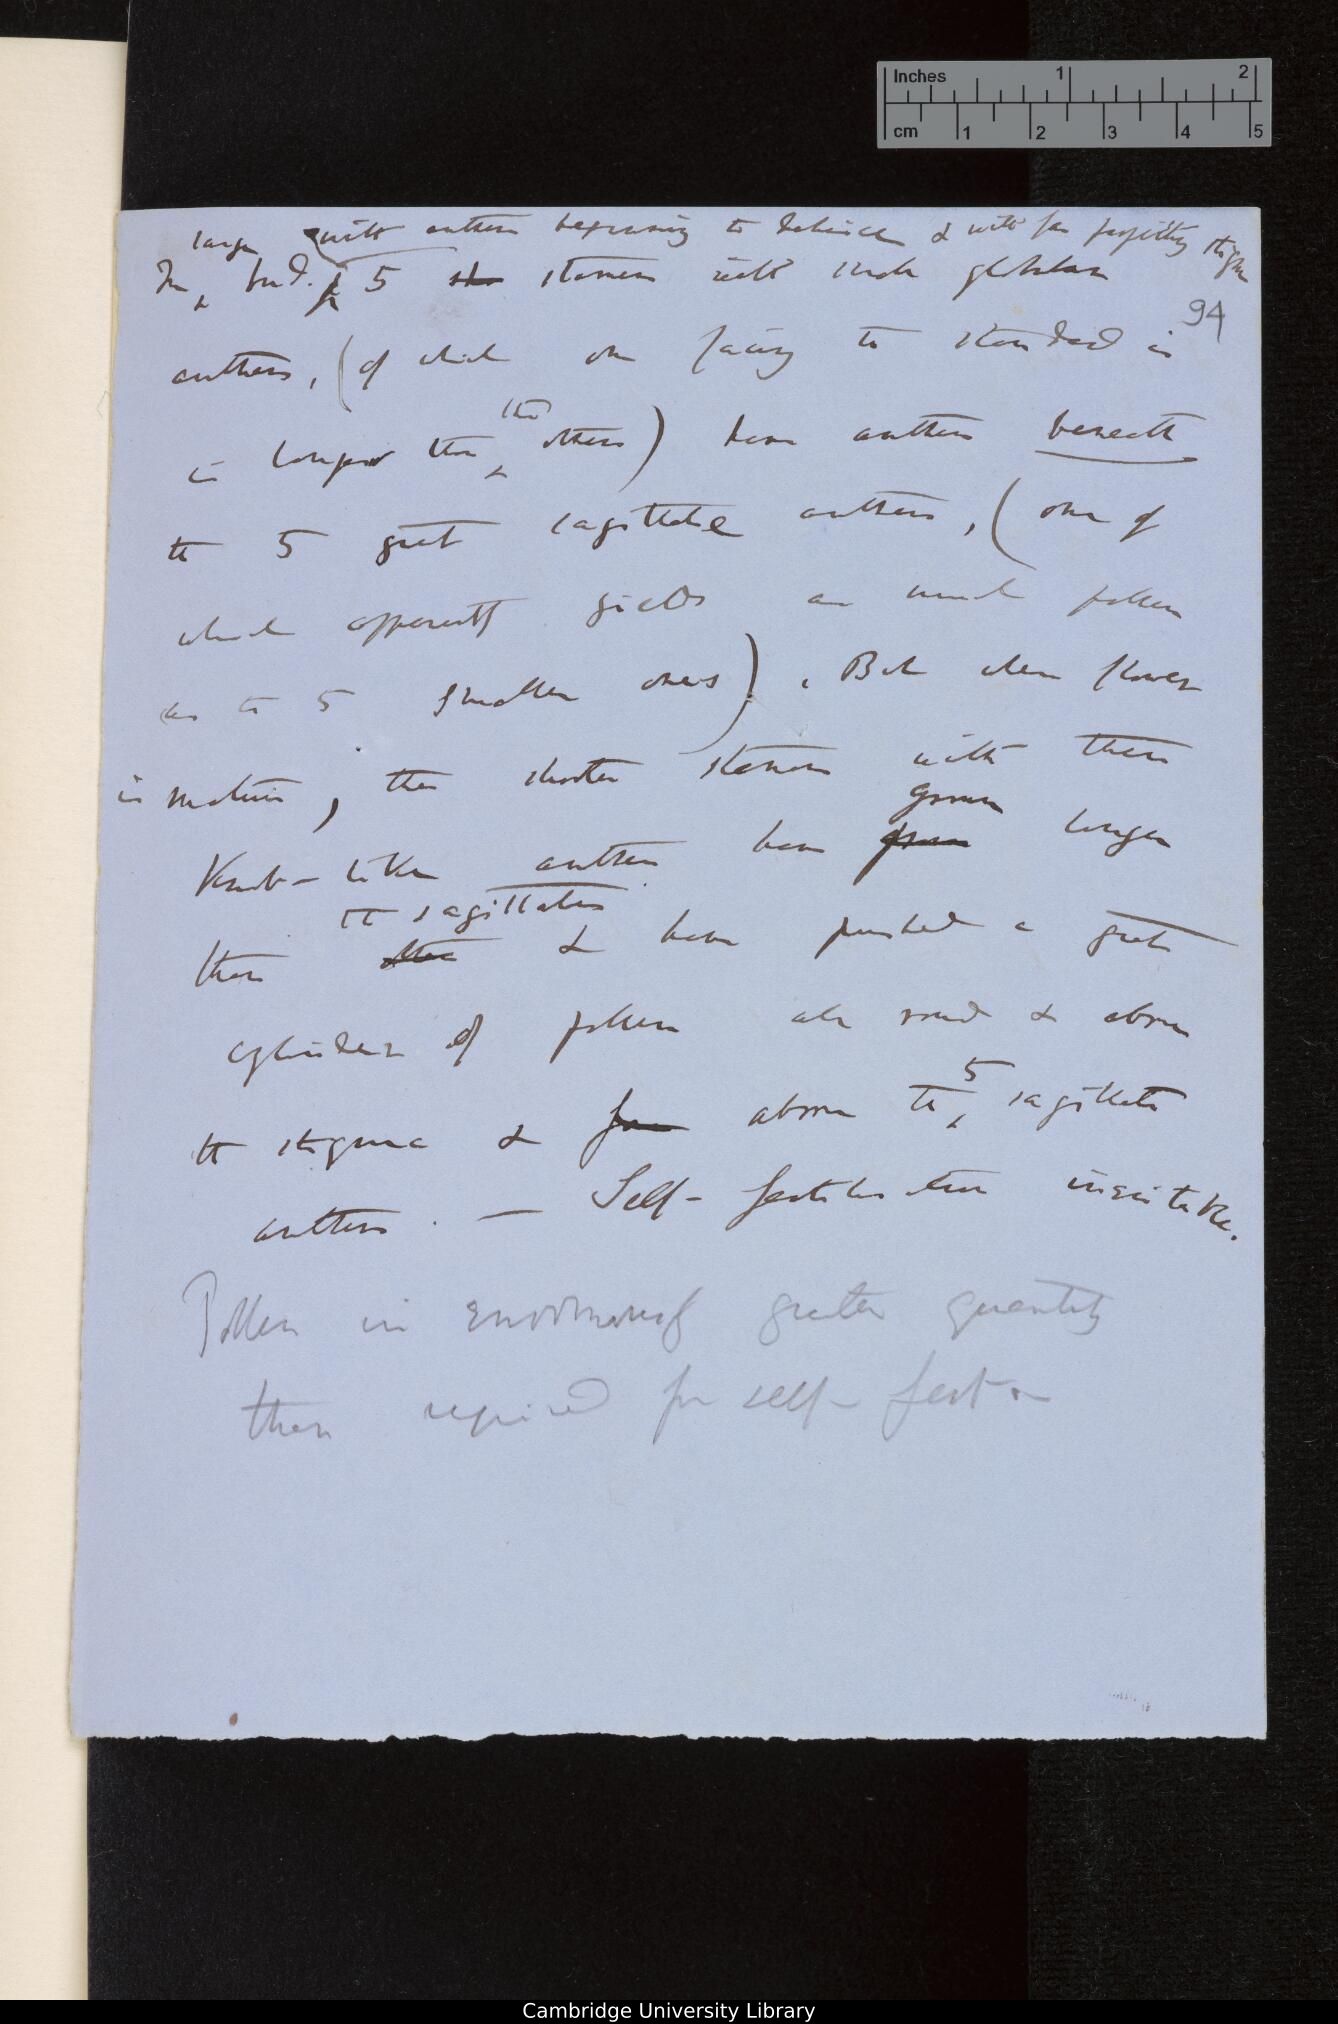 Inches 1 2
cm 1 2 3 4 5
large with anthers beginning to dehisce & with far projecting stigma
In bud. 5 stamens with small globular
94
anthers, (of which one facing to standard is
the
is longer than others) have anthers beneath
the 5 great sagittate anthers, (one of
which apparently yields as much pollen
as the 5 smaller ones). But when flower
is mature, the shorter stamens with their
grown
Knob-like anthers have longer
the sagittates
than & have pushed a great
cylinder of pollen all round & above
5
the stigma & above the sagittate
anthers. — Self-fertilisation inevitable.
Pollen in enormously greater quantity
than required for self-fertn
Cambridge University Library